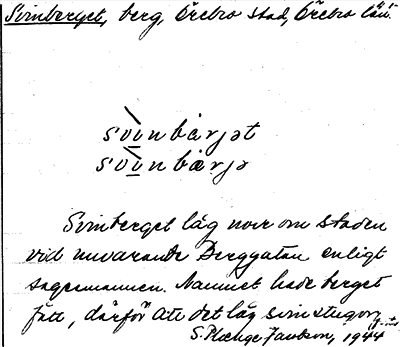 Svinberget, berg, Örebro stad, Örebro län.
svinbärjət
svinbärjə
Svinberget låg norr om staden
vid nuvarande Berggatan enligt
sagesmannen. Namnet hade berget
fått, därför att det låg svinstugor
S. Plænge Jacobson, 1944